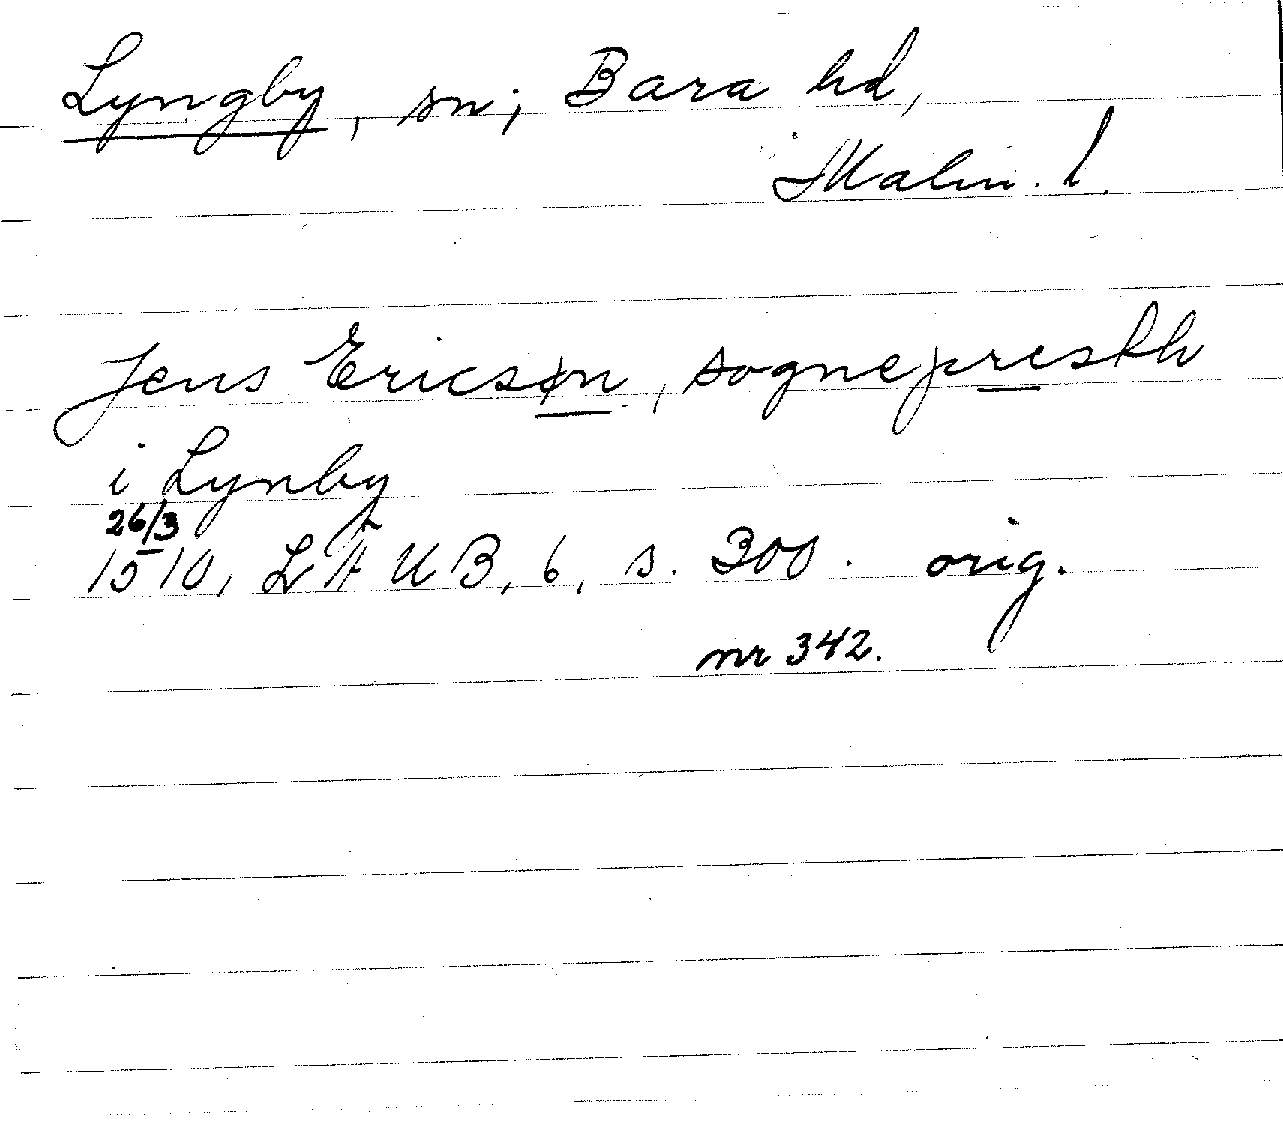 Lyngby, sn; Bara hd,
Malm. l.
Jens Ericsøn, sognepresth
i Lynby
26/3
1510, LÅUB, 6, s. 300. orig.
nr 342.